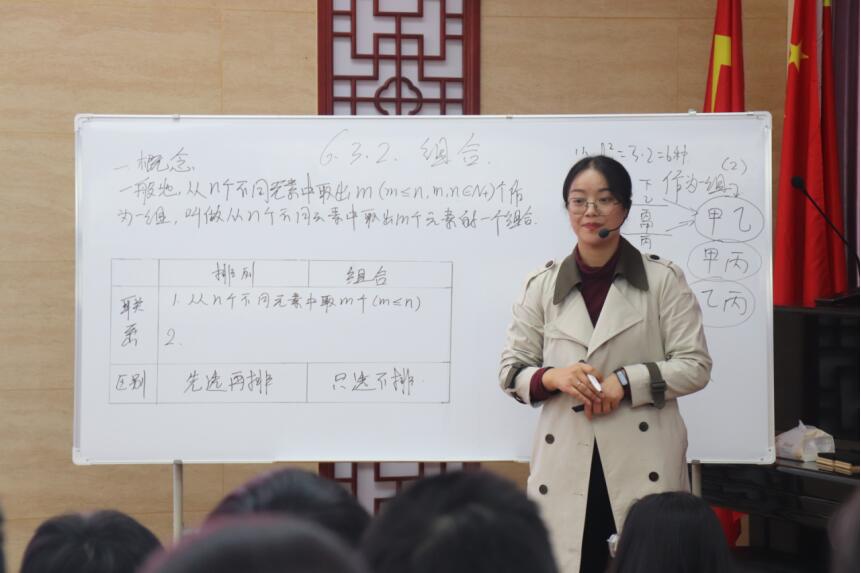 6.3.2. 组合.
一.概念
一般地,从n个不同元素中取出m(m≤n,m,n∈N+)个作
为一组,叫做从n个不同元素中取出m个元素的一个组合.
排列 组合
联系 1.从n个不同元素中取m个(m≤n)
2.
区别 先选再排 只选不排.
=3·2=6种
(2)
作为一组
甲乙
甲丙
乙丙
丙